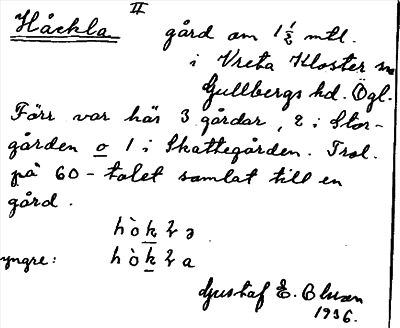 II
Håckla gård om 1 1/2 mtl.
i Vreta Kloster sn
Gullbergs hd. Ögl.
Förr var här 3 gårdar, 2 i Stor-
gården o 1 i Skattegården. Trol.
på 60-talet samlat till en
gård.
hòkɫə
yngre: hòkɫa
Gustaf E. Olsson
1936.